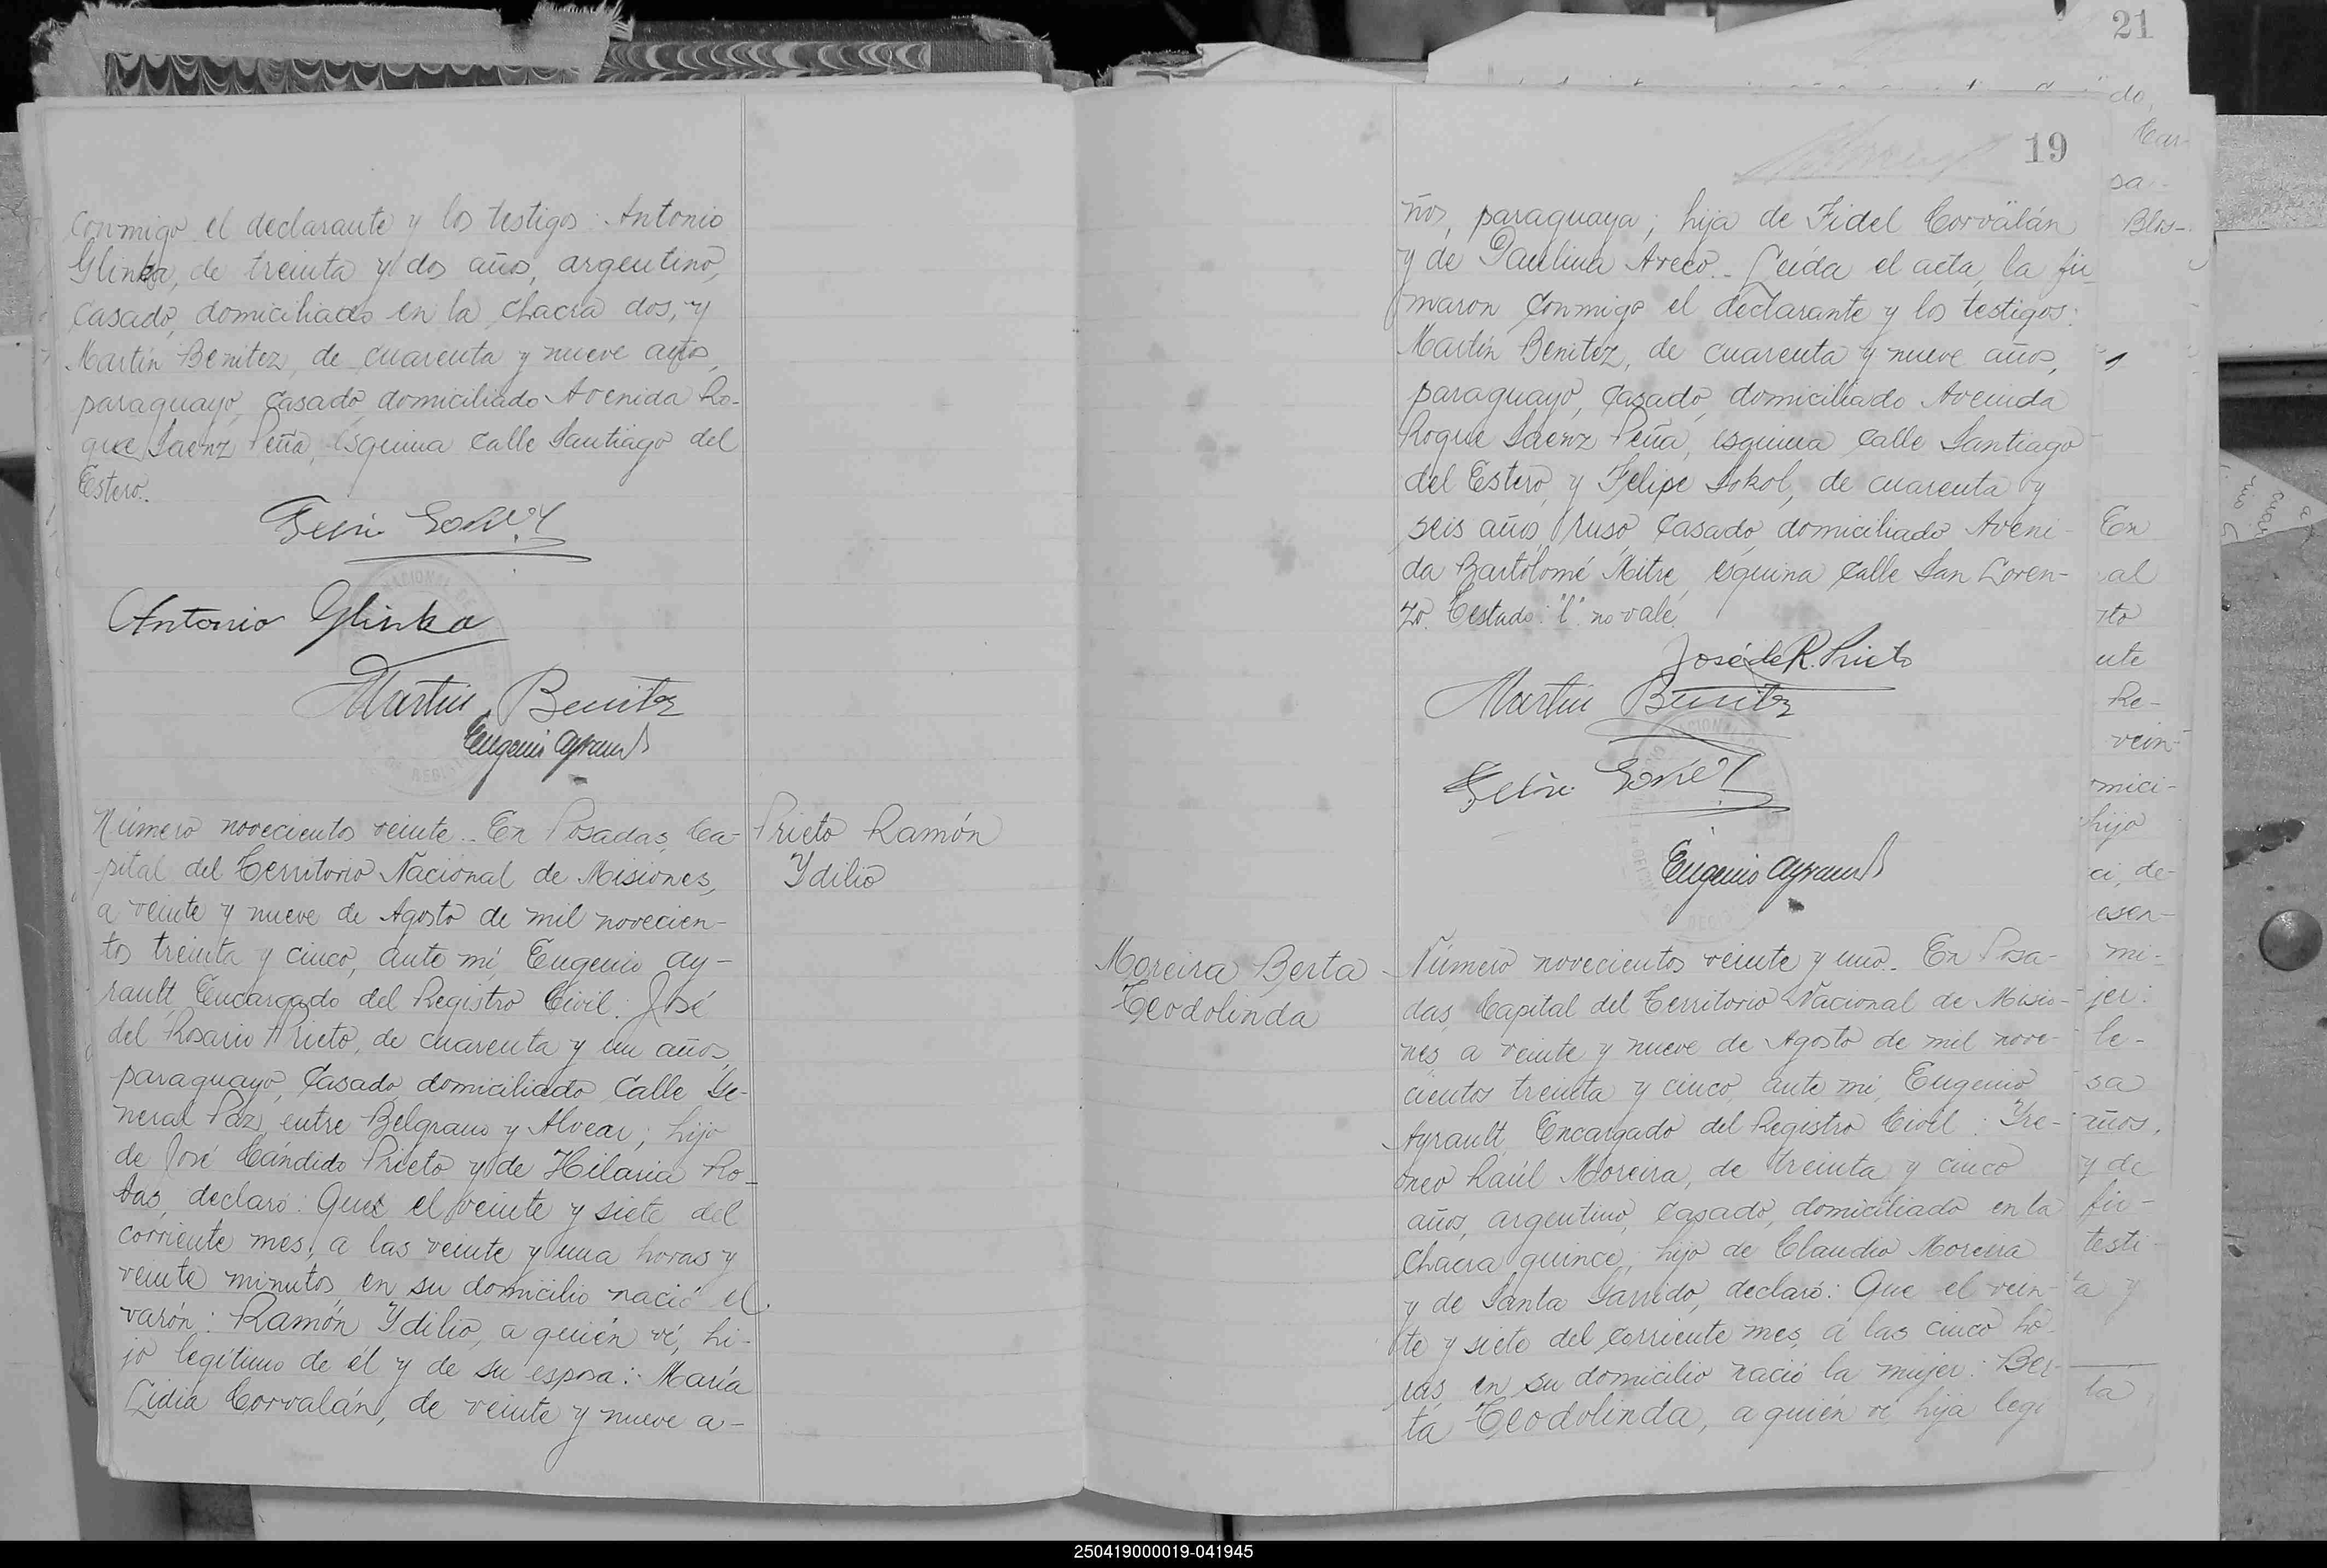 conmigo el declarante y los testigos: Antonio
Glinka, de treinta y dos años, argentino,
casado, domiciliado en la chacra dos, y
Martín Benitez, de cuarenta y nueve años,
paraguayo, casado, domiciliado Avenida Ro-
que Saenz Peña, esquina calle Santiago del
Estero.
Antonio Glinka
Martin Benitez
Eugenio Ayrault
Número novecientos veinte.. En Posadas, Ca-
pital del Territorio Nacional de Misiones,
a veinte y nueve de Agosto de mil novecien-
tos treinta y cinco, ante mí, Eugenio Ay-
rault, Encargado del Registro Civil: José
del Rosario Prieto, de cuarenta y un años,
paraguayo, casado, domiciliado Calle Ge-
neral Paz, entre Belgrano y Alvear; hijo
de José Cándido Prieto y de Hilaria Ro-
jas, declaró: Que el veinte y siete del
corriente mes, a las veinte y una horas y
veinte minutos, en su domicilio nació el
varón: Ramón Ydilio, a quién ví, hi-
jo legítimo de él y de su esposa: María
Lidia Corvalán, de veinte y nueve a-
Prieto Ramón
Ydilio
21
19
ños, paraguaya; hija de Fidel Corvalán
y de Paulina Areco.- Leída el acta, la fir-
maron conmigo el declarante y los testigos:
Martín Benitez, de cuarenta y nueve años,
paraguayo, casado, domiciliado Avenida
Roque Saenz Peña, esquina calle Santiago
del Estero, y Felipe Sokol, de cuarenta y
seis años, ruso, casado, domiciliado Aveni-
da Bartolomé Mitre, esquina calle San Loren-
zo. Testado: "l" no vale.
José del R. Prieto
Martin Benitez
Eugenio Ayrault
Moreira Berta
Teodolinda
Número novecientos veinte y uno.. En Posa-
das, Capital del Territorio Nacional de Misio-
nes, a veinte y nueve de Agosto de mil nove-
cientos treinta y cinco, ante mí, Eugenio
Ayrault, Encargado del Registro Civil: Yre-
neo Raúl Moreira, de treinta y cinco
años, argentino, casado, domiciliado en la
chacra quince, hijo de Claudio Moreira
y de Santa Garrido, declaró: Que el vein-
te y siete del corriente mes, a las cinco ho-
ras, en su domicilio nació la mujer: Ber-
ta Teodolinda, a quién ví, hija legi
do,
sa
Blas-
En
al
nte
Re-
vein-
mici-
hijo
ci, de-
mi-
jer:
le-
sa
años,
y de
fir-
testi-
ta y
ta
250419000019-041945